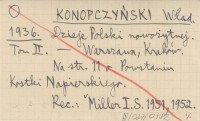 KONOPCZYŃSKI Wład.
1936. Dzieje Polski nowożytnej.
Tom II. — Warszawa, Kraków.
Na str. 11 o Powstaniu
Kostki Napierskiego.
Rec.: "Miller I.S. 1951, 1952.